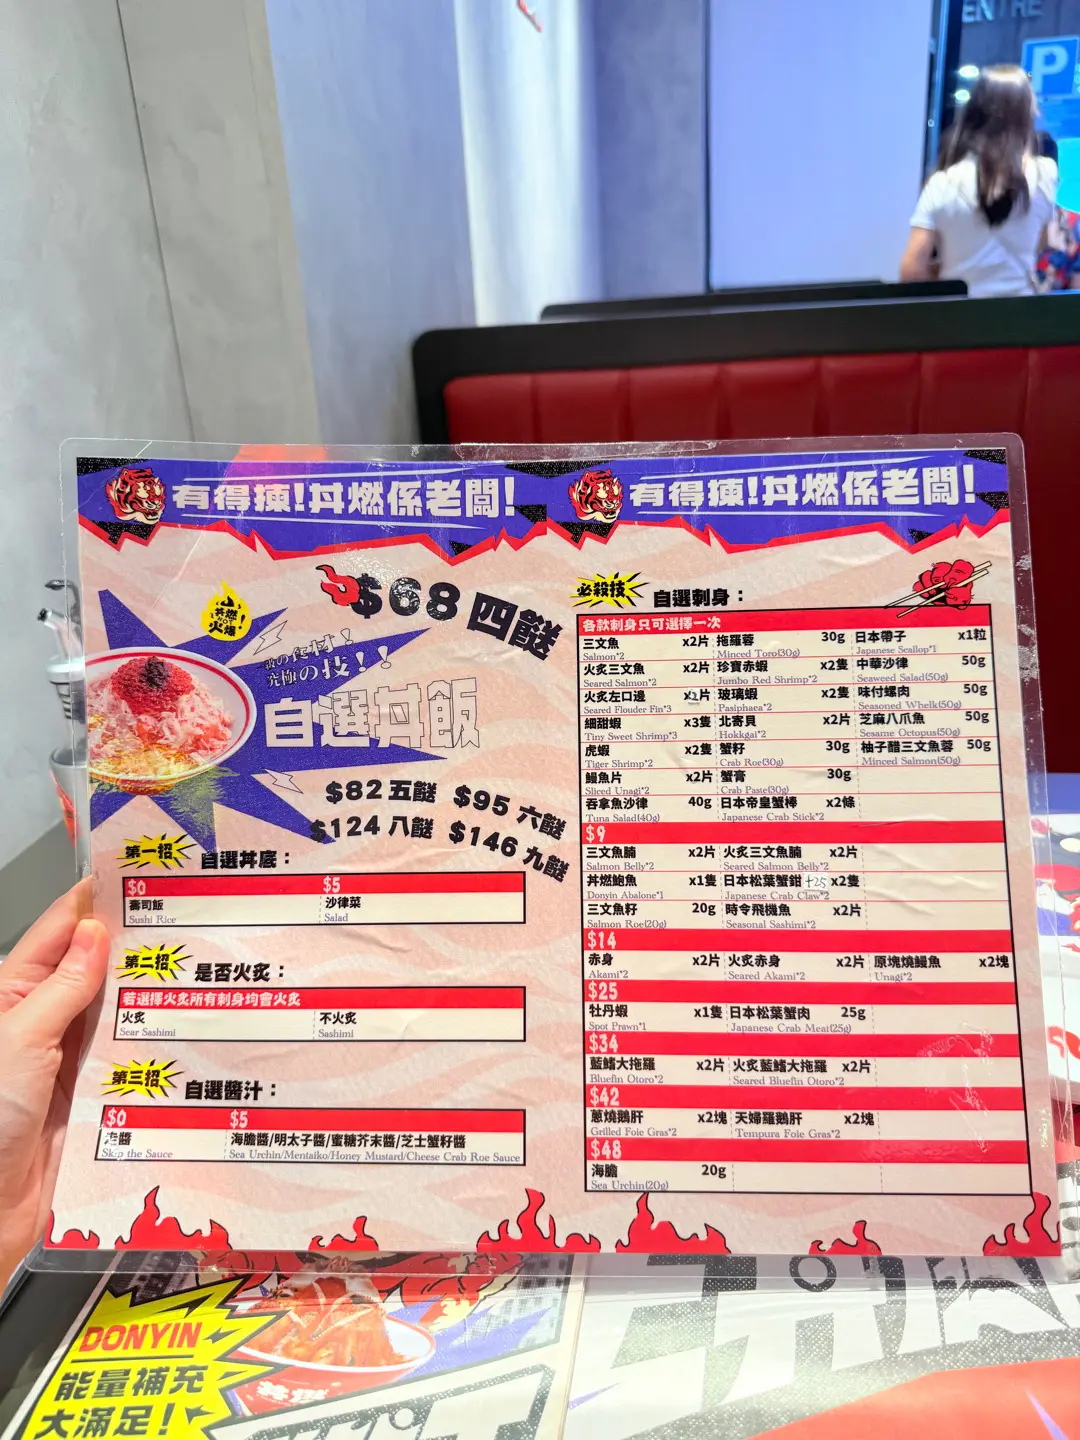 ENTRE
P
有得揀!丼燃係老闆!
有得揀!丼燃係老闆!
丼燃
火爆
$68 四餸
究極の技!!
自選丼飯
$82 五餸 $95 六餸
$124 八餸 $146 九餸
第一招 自選丼底：
$0 $5
壽司飯 沙律菜
Sushi Rice Salad
第二招 是否火炙：
若選擇火炙所有刺身均會火炙
火炙 不火炙
Sear Sashimi Sashimi
第三招 自選醬汁：
$0 $5
走醬 海膽醬/明太子醬/蜜糖芥末醬/芝士蟹籽醬
Skip the Sauce Sea Urchin/Mentaiko/Honey Mustard/Cheese Crab Roe Sauce
必殺技 自選刺身：
各款刺身只可選擇一次
三文魚 x2片 拖羅蓉 30g 日本帶子 x1粒
Salmon*2 Minced Toro(30g) Japanese Scallop*1
火炙三文魚 x2片 珍寶赤蝦 x2隻 中華沙律 50g
Seared Salmon*2 Jumbo Red Shrimp*2 Seaweed Salad(50g)
火炙左口邊 x2片 玻璃蝦 x2隻 味付螺肉 50g
Seared Flouder Fin*3 Pasiphaea*2 Seasoned Whelk(50g)
細甜蝦 x3隻 北寄貝 x2片 芝麻八爪魚 50g
Tiny Sweet Shrimp*3 Hokkgai*2 Sesame Octopus(50g)
虎蝦 x2隻 蟹籽 30g 柚子醋三文魚蓉 50g
Tiger Shrimp*2 Crab Roe(30g) Minced Salmon(50g)
鰻魚片 x2片 蟹膏 30g
Sliced Unagi*2 Crab Paste(30g)
吞拿魚沙律 40g 日本帝皇蟹棒 x2條
Tuna Salad(40g) Japanese Crab Stick*2
$9
三文魚腩 x2片 火炙三文魚腩 x2片
Salmon Belly*2 Seared Salmon Belly*2
丼燃鮑魚 x1隻 日本松葉蟹鉗 +25 x2隻
Donyin Abalone*1 Japanese Crab Claw*2
三文魚籽 20g 時令飛機魚 x2片
Salmon Roe(20g) Seasonal Sashimi*2
$14
赤身 x2片 火炙赤身 x2片 原塊燒鰻魚 x2塊
Akami*2 Seared Akami*2 Unagi*2
$25
牡丹蝦 x1隻 日本松葉蟹肉 25g
Spot Prawn*1 Japanese Crab Meat(25g)
$34
藍鰭大拖羅 x2片 火炙藍鰭大拖羅 x2片
Bluefin Otoro*2 Seared Bluefin Otoro*2
$42
蔥燒鵝肝 x2塊 天婦羅鵝肝 x2塊
Grilled Foie Gras*2 Tempura Foie Gras*2
$48
海膽 20g
Sea Urchin(20g)
DONYIN
能量補充
大滿足!